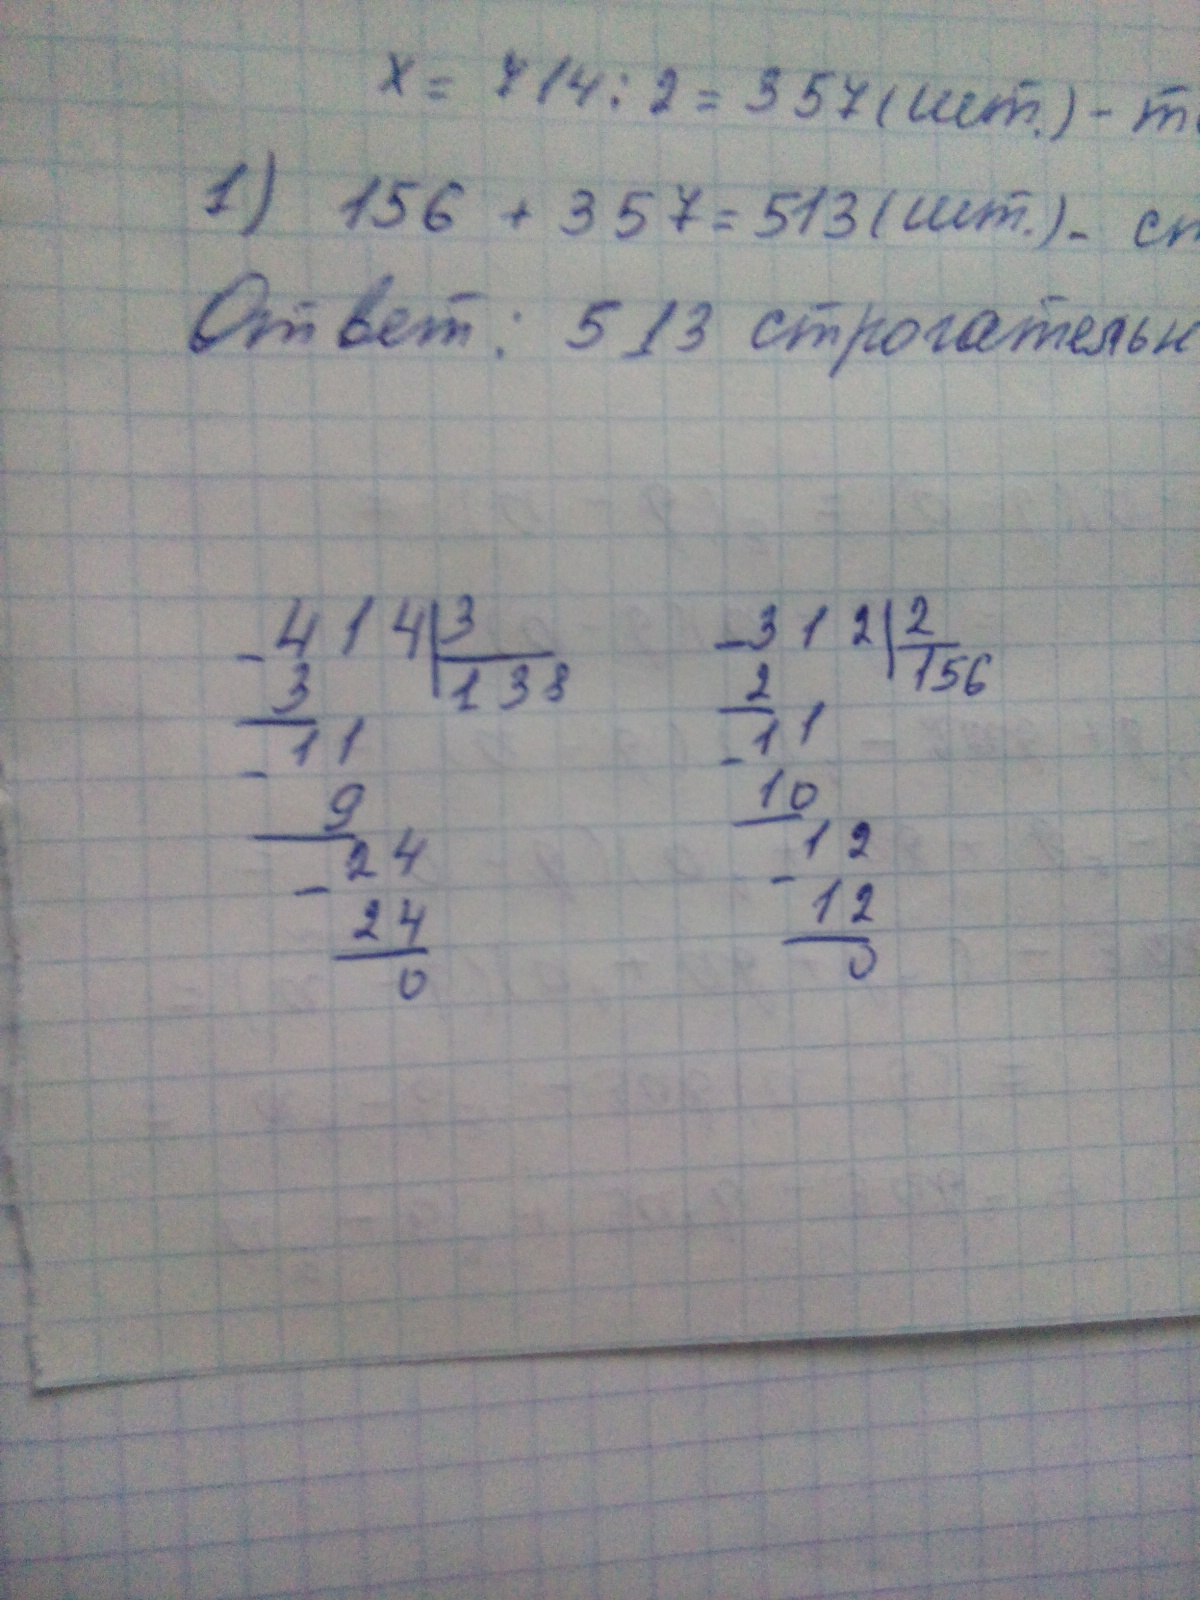 x = 714 : 2 = 357 (шт.) -
1) 156 + 357 = 513 (шт.) -
Ответ: 513 строгательн
- 414 | 3
3 138
- 11
9
- 24
24
0
- 312 | 2
2 156
- 11
10
- 12
12
0